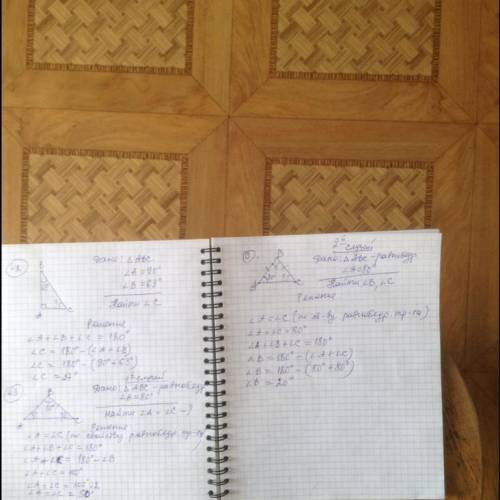 Дано: △ABC
∠A = 90°
∠B = 63°
Найти ∠C
Решение
∠A + ∠B + ∠C = 180°
∠C = 180° - (∠A + ∠B)
∠C = 180° - (90° + 63°)
∠C = 27°
Дано: △ABC - равнобедр.
∠A = 80°
Найти ∠A = ∠C - ?
Решение
∠A = ∠C (по свойству равнобедр. тр-ка)
∠A + ∠B + ∠C = 180°
∠A + ∠C = 180° - ∠B
∠A + ∠C = 100°
∠A = ∠C = 100° : 2
∠A = ∠C = 50°
2й случай
Дано: △ABC - равнобедр.
∠A = 80°
Найти ∠B, ∠C
Решение
∠A = ∠C (по св-ву равнобедр. тр-ка)
∠A = ∠C = 80°
∠A + ∠B + ∠C = 180°
∠B = 180° - (∠A + ∠C)
∠B = 180° - (80° + 80°)
∠B = 20°